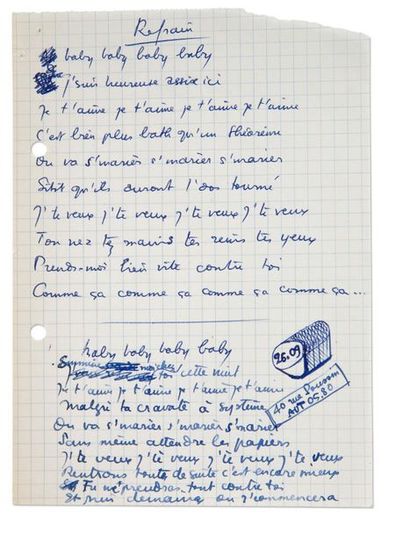 Refrain
baby baby baby baby
j'suis heureuse assise ici
Je t'aime je t'aime je t'aime je t'aime
C'est bien plus bath qu'un théorème
On va s'marier s'marier s'marier
Sitôt qu'ils auront l'dos tourné
J'te veux j'te veux j'te veux j'te veux
Ton nez tes mains tes reins tes yeux
Prends-moi bien vite contre toi
Comme ça comme ça comme ça comme ça...
baby baby baby baby
toi cette nuit
Je t'aime je t'aime je t'aime je t'aime
malgré ta cravate à système
On va s'marier s'marier s'marier
Sans même attendre les papiers
J'te veux j'te veux j'te veux j'te veux
Rentrons toute de suite c'est encore mieux
Tu m'prendras tout contre toi
Et puis demain on r'commencera
26.09
40 rue Poussin
AUT 05.80